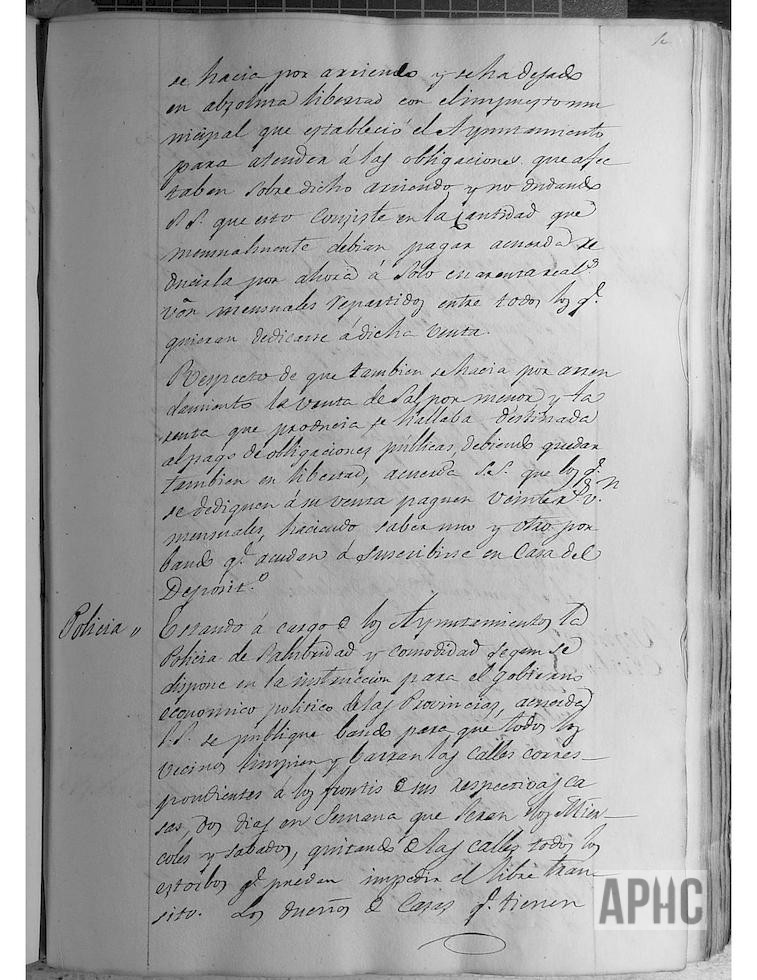 se hacia por arriendo y se ha dejado
en absoluta libertad con el impuesto mu
nicipal que estableció el Ayuntamiento
para atender á las obligaciones que afec
taban sobre dicho arriendo y no dudando
S.S. que esto consiste en la Cantidad que
mensualmente debian pagar acuerda re
ducirla por ahora á Solo cuarenta real.s
von mensuales repartidos entre todos los q.e
quieran dedicarse á dicha venta.
Respecto de que tambien se hacia por arren
damiento la venta de Sal por menor y la
renta que producia se hallaba destinada
al pago de obligaciones públicas, debiendo quedar
tambien en libertad, acuerda S.S. que los q.e
se dediquen á su venta paguen veinte r.s v.n
mensuales, haciendo saber uno y otro por
bando q.e acudan á suscribirse en Casa del
Deposit.o
Policia "
Estando á cargo de los Ayuntamientos la
Policia de Salubridad y comodidad segun se
dispone en la instruccion para el gobierno
economico politico de las Provincias, acuerda
S.S. se publique bando para que todos los
vecinos limpien y barran las calles corres-
pondientes á los frontis de sus respectivas ca
sas, dos dias en Semana que seran los Mier-
coles y sabados, quitando de las calles todos los
estorbos q.e puedan impedir el libre tran-
sito. Los dueños de Casas q.e tienen
APHC